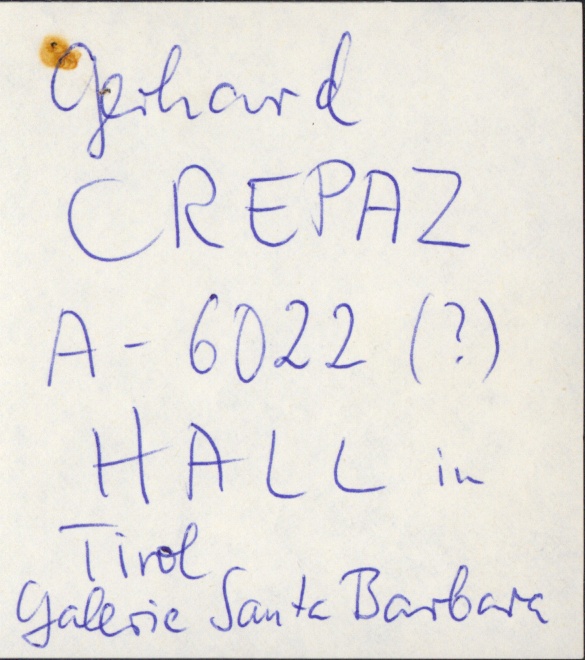 Gerhard
CREPAZ
A - 6022 (?)
HALL in
Tirol
Galerie Santa Barbara